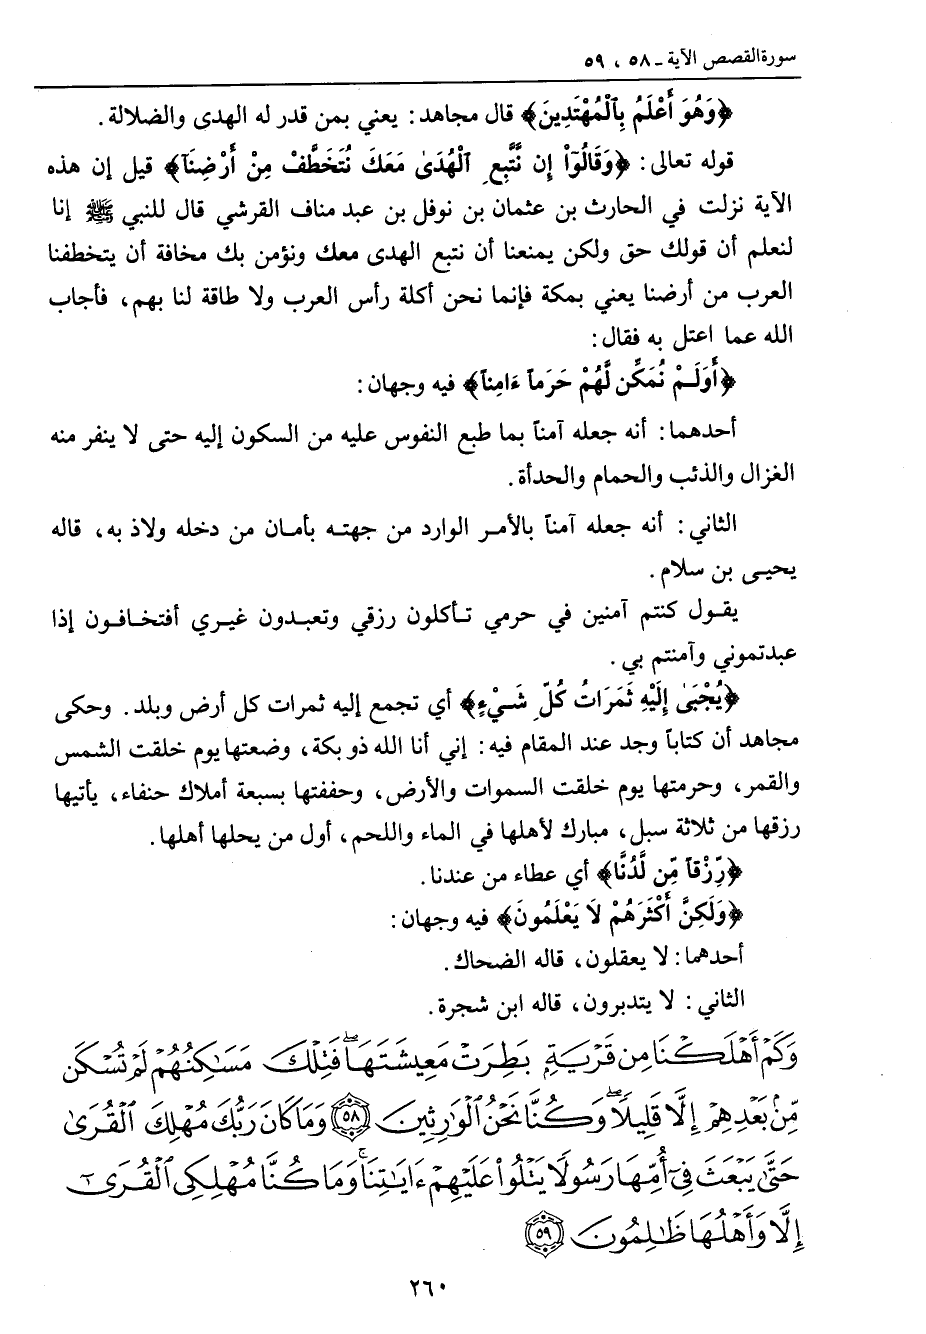 سورة القصص الآية ـ ٥٨ ، ٥٩
﴿وَهُوَ أَعْلَمُ بِٱلْمُهْتَدِينَ﴾ قال مجاهد: يعني بمن قدر له الهدى والضلالة.
قوله تعالى: ﴿وَقَالُوٓاْ إِن نَّتَّبِعِ ٱلْهُدَىٰ مَعَكَ نُتَخَطَّفْ مِنْ أَرْضِنَآ﴾ قيل إن هذه
الآية نزلت في الحارث بن عثمان بن نوفل بن عبد مناف القرشي قال للنبي ﷺ إنا
لنعلم أن قولك حق ولكن يمنعنا أن نتبع الهدى معك ونؤمن بك مخافة أن يتخطفنا
العرب من أرضنا يعني بمكة فإنما نحن أكلة رأس العرب ولا طاقة لنا بهم، فأجاب
الله عما اعتل به فقال:
﴿أَوَلَمْ نُمَكِّن لَّهُمْ حَرَماً ءَامِناً﴾ فيه وجهان:
أحدهما: أنه جعله آمناً بما طبع النفوس عليه من السكون إليه حتى لا ينفر منه
الغزال والذئب والحمام والحدأة.
الثاني: أنه جعله آمناً بالأمر الوارد من جهته بأمان من دخله ولاذ به، قاله
يحيى بن سلام.
يقول كنتم آمنين في حرمي تأكلون رزقي وتعبدون غيري أفتخافون إذا
عبدتموني وآمنتم بي.
﴿يُجْبَىٰ إِلَيْهِ ثَمَرَاتُ كُلِّ شَيْءٍ﴾ أي تجمع إليه ثمرات كل أرض وبلد. وحكى
مجاهد أن كتاباً وجد عند المقام فيه: إني أنا الله ذو بكة، وضعتها يوم خلقت الشمس
والقمر، وحرمتها يوم خلقت السموات والأرض، وحففتها بسبعة أملاك حنفاء، يأتيها
رزقها من ثلاثة سبل، مبارك لأهلها في الماء واللحم، أول من يحلها أهلها.
﴿رِّزْقاً مِّن لَّدُنَّا﴾ أي عطاء من عندنا.
﴿وَلَكِنَّ أَكْثَرَهُمْ لَا يَعْلَمُونَ﴾ فيه وجهان:
أحدهما: لا يعقلون، قاله الضحاك.
الثاني: لا يتدبرون، قاله ابن شجرة.
وَكَمْ أَهْلَكْنَا مِن قَرْيَةٍۭ بَطِرَتْ مَعِيشَتَهَاۖ فَتِلْكَ مَسَٰكِنُهُمْ لَمْ تُسْكَن
مِّنۢ بَعْدِهِمْ إِلَّا قَلِيلًاۖ وَكُنَّا نَحْنُ ٱلْوَٰرِثِينَ ٥٨ وَمَا كَانَ رَبُّكَ مُهْلِكَ ٱلْقُرَىٰ
حَتَّىٰ يَبْعَثَ فِىٓ أُمِّهَا رَسُولًا يَتْلُواْ عَلَيْهِمْ ءَايَٰتِنَاۚ وَمَا كُنَّا مُهْلِكِى ٱلْقُرَىٰٓ
إِلَّا وَأَهْلُهَا ظَٰلِمُونَ ٥٩
٢٦٠